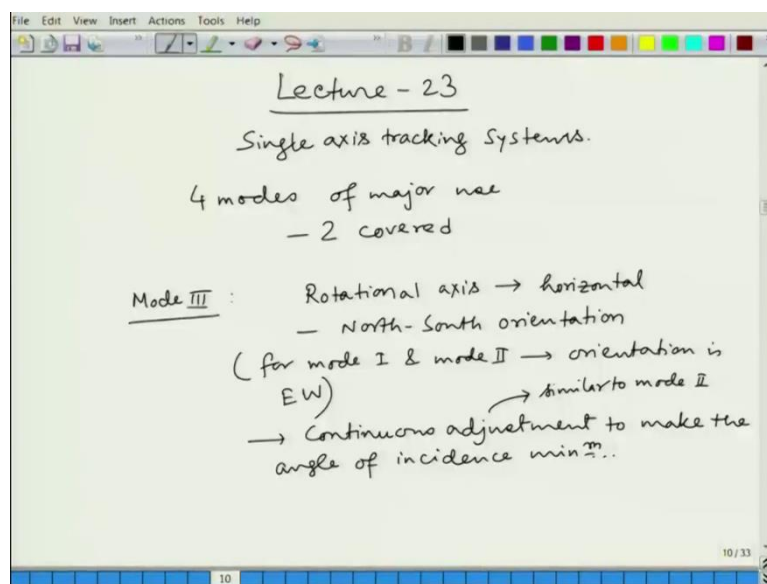 File Edit View Insert Actions Tools Help
Lecture - 23
Single axis tracking systems.
4 modes of major use
- 2 covered
Mode III : Rotational axis → horizontal
- North-South orientation
(for mode I & mode II → orientation is
EW)
→ similar to mode II
→ Continuous adjustment to make the
angle of incidence minm..
10 / 33
10